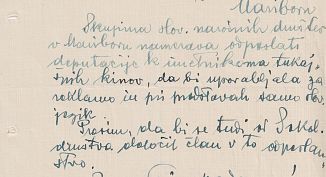 Maribor
Skupina slov. naravnih društev
v Mariboru namerava odposlati
deputacijo k imetnikoma tukaj-
šnjih kinov, da bi uporabljala za
reklamo in pri predstavah samo slov.
jezik.
Prosim, da bi se tudi iz Sokol.
društva določil član v to odposlan-
stvo.